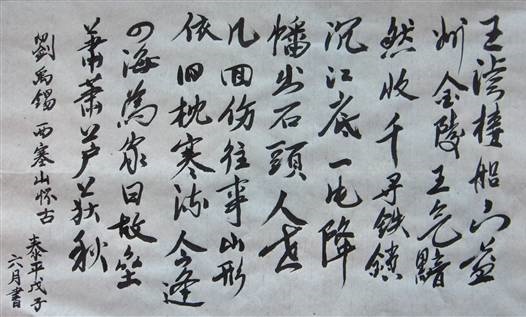 王濬楼船下益
州金陵王气黯
然收千寻铁鎖
沉江底一片降
幡出石頭人世
几回伤往事山形
依旧枕寒流今逢
四海為家日故垒
萧萧芦荻秋
劉禹锡 西塞山怀古
泰平戊子
六月書